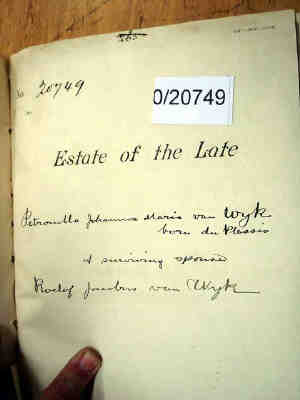 No 20749
0/20749
Estate of the Late
Petronella Johanna Maria van Wyk
born du Plessis
& surviving spouse
Roelof Jacobus van Wyk